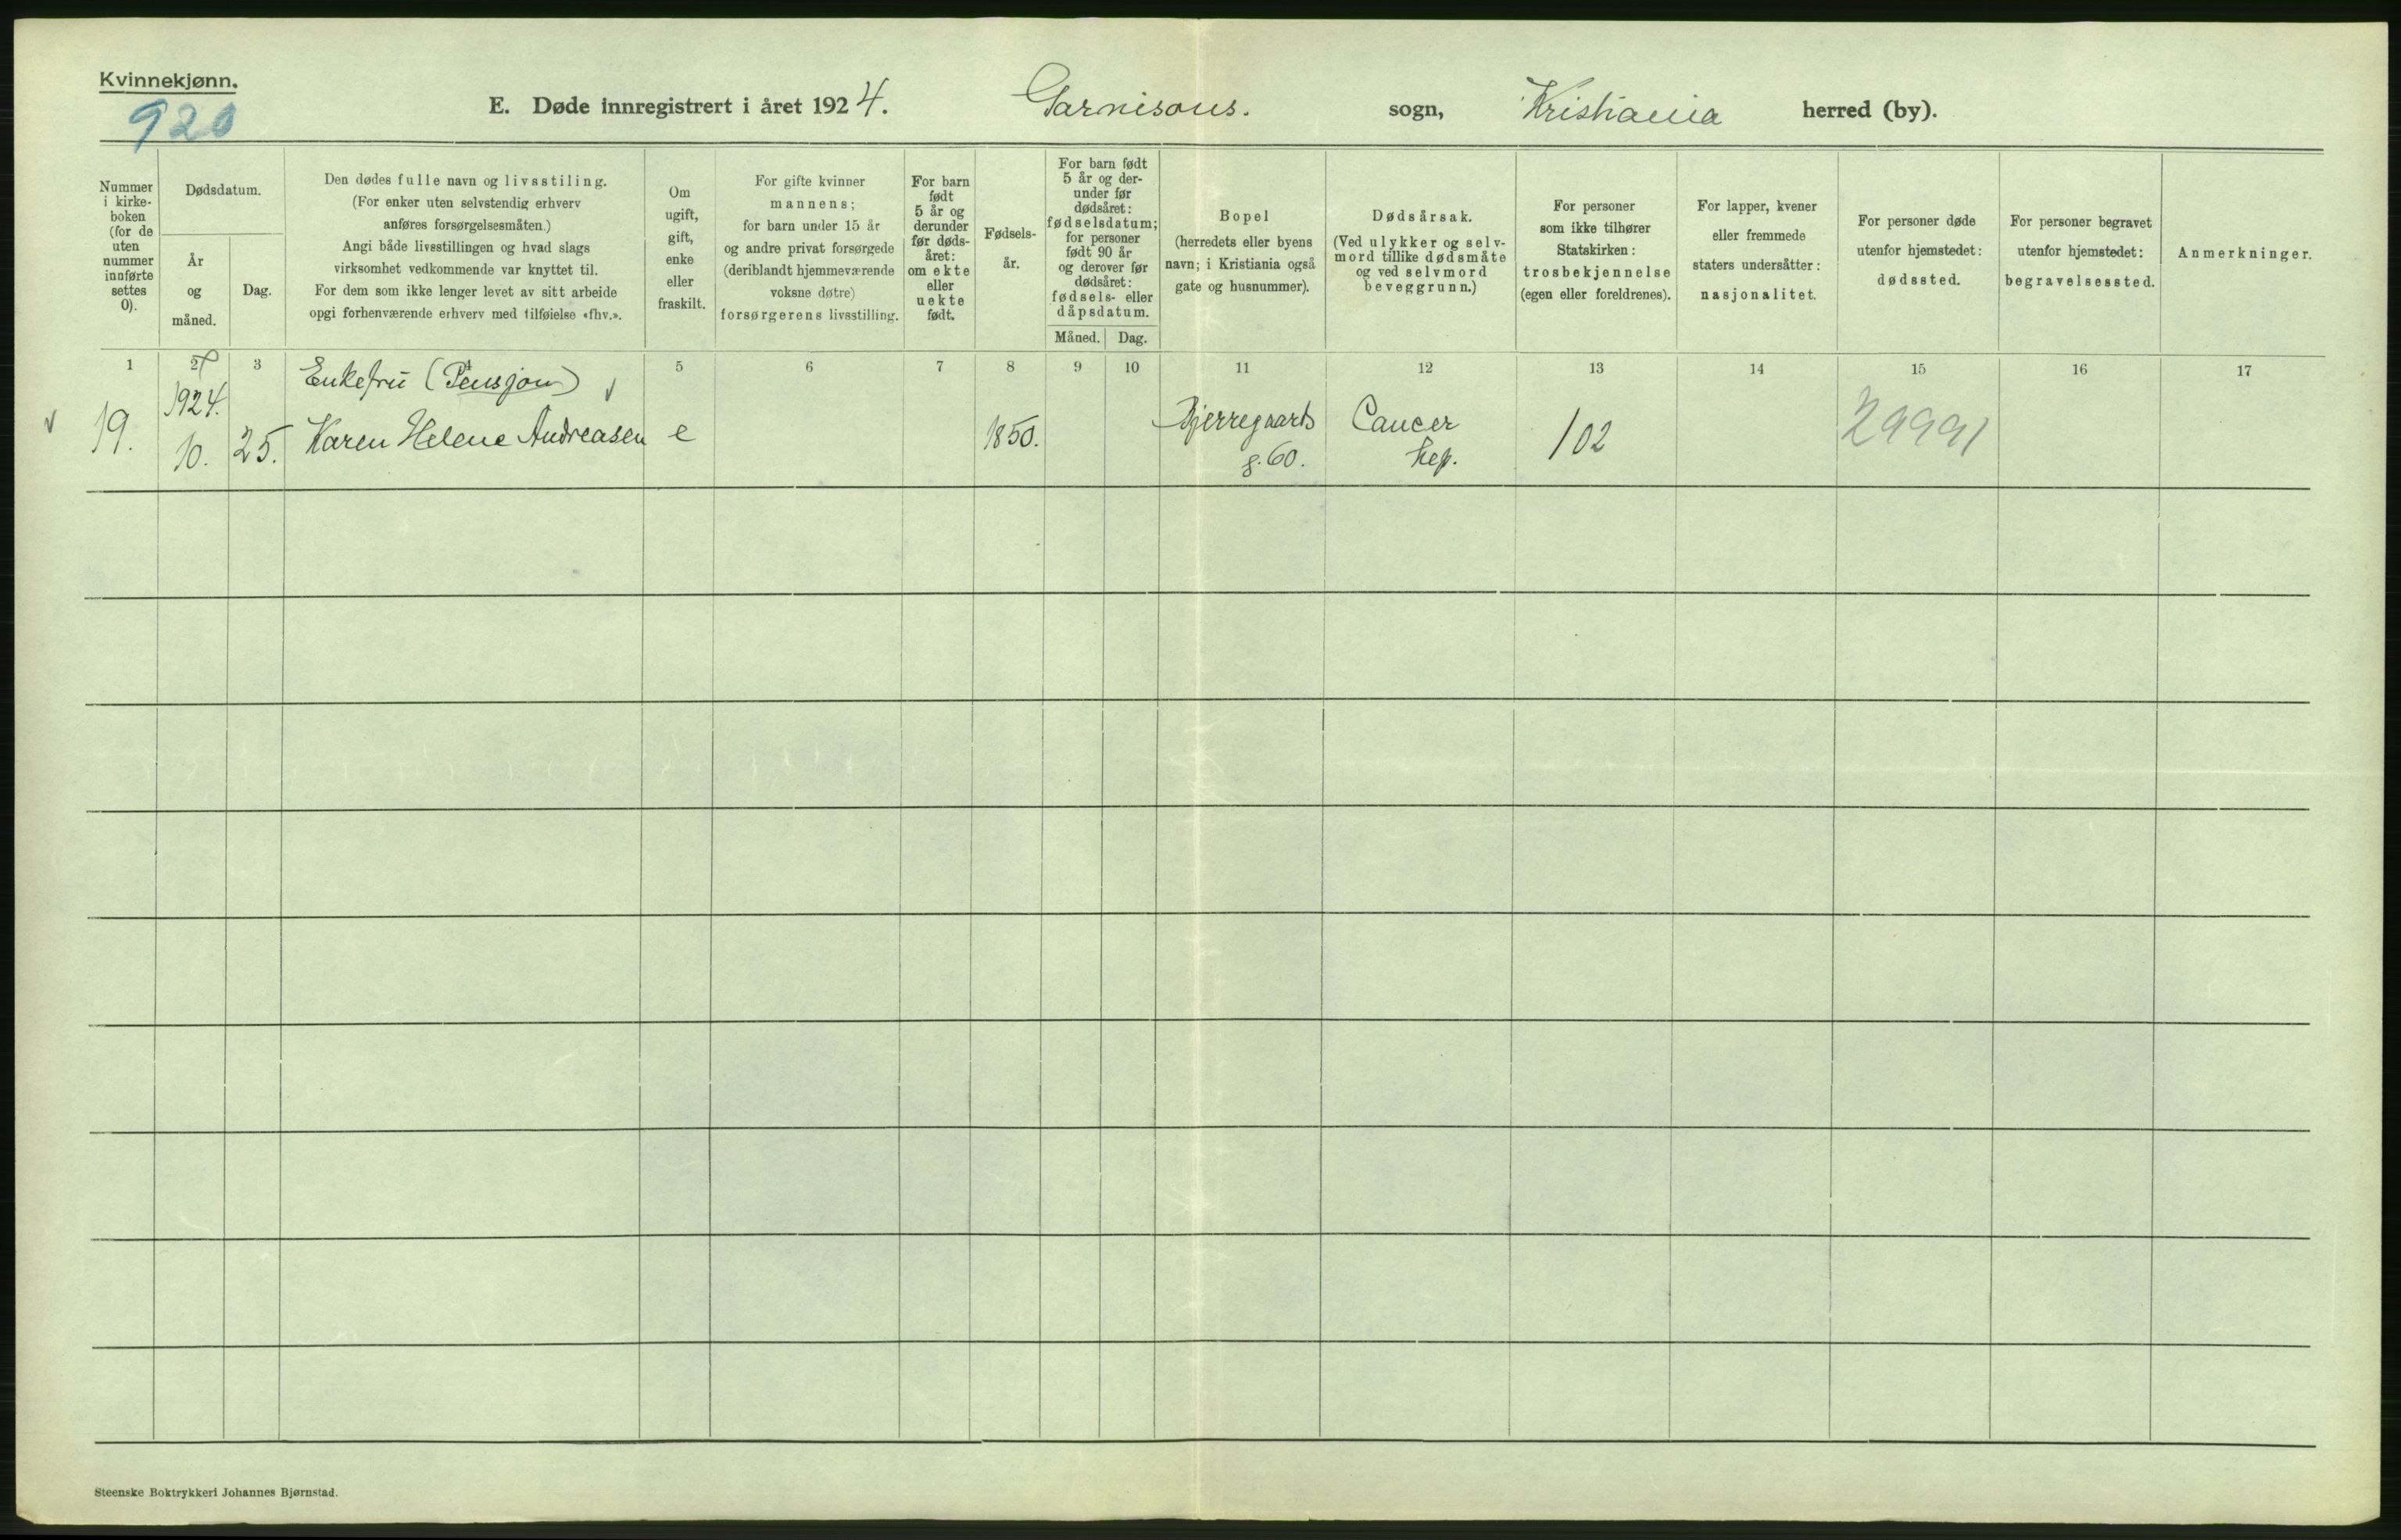 Kvinnekjønn.
920
E. Døde innregistrert i året 1924. Garnisons. sogn, Kristiania herred (by).
Nummer i kirke-boken (for de uten nummer innførte settes 0).
Dødsdatum.
År og måned.
Dag.
Den dødes fulle navn og livsstiling.
(For enker uten selvstendig erhverv
anføres forsørgelsesmåten.)
Angi både livsstillingen og hvad slags
virksomhet vedkommende var knyttet til.
For dem som ikke lenger levet av sitt arbeide
opgi forhenværende erhverv med tilføielse «fhv.».
Om
ugift,
gift,
enke
eller
fraskilt.
For gifte kvinner
mannens;
for barn under 15 år
og andre privat forsørgede
(deriblandt hjemmeværende
voksne døtre)
forsørgerens livsstilling.
For barn
født
5 år og
derunder
før døds-
året:
om ekte
eller
uekte
født.
Fødsels-
år.
For barn født
5 år og der-
under før
dødsåret:
fødselsdatum;
for personer
født 90 år
og derover før
dødsåret:
fødsels- eller
dåpsdatum.
Måned. Dag.
Bopel
(herredets eller byens
navn; i Kristiania også
gate og husnummer).
Dødsårsak.
(Ved ulykker og selv-
mord tillike dødsmåte
og ved selvmord
beveggrunn.)
For personer
som ikke tilhører
Statskirken:
trosbekjennelse
(egen eller foreldrenes).
For lapper, kvener
eller fremmede
staters undersåtter:
nasjonalitet.
For personer døde
utenfor hjemstedet:
dødssted.
For personer begravet
utenfor hjemstedet:
begravelsessted.
Anmerkninger.
1 2 3 5 6 7 8 9 10 11 12 13 14 15 16 17
Enkefru (Pensjon)
19. 1924. 10. 25. Karen Helene Andreasen e 1850. Bjerregaards g. 60. Cancer hep. 102 29991
Steenske Boktrykkeri Johannes Bjørnstad.